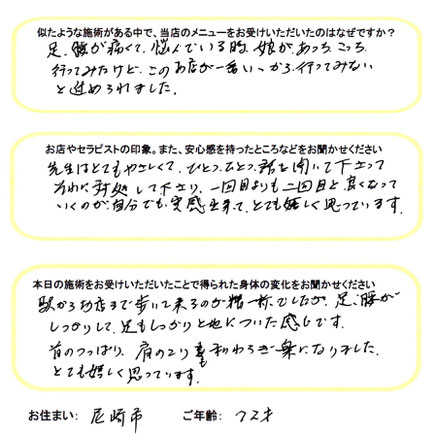 似たような施術がある中で、当店のメニューをお受けいただいたのはなぜですか？
足、腰が痛くて、悩んでいる時、娘が、あっち、こっち、
行ってみたけど、このお店が一番いいから、行ってみない
と進められました。
お店やセラピストの印象。また、安心感を持ったところなどをお聞かせください
先生はとてもやさしくて、ひとつ、ひとつ、話を聞いて下さって
それに対処して下さり、一回目よりも二回目と良くなって
いくのが、自分でも、実感出来て、とても嬉しく思っています。
本日の施術をお受けいただいたことで得られた身体の変化をお聞かせください
駅からお店まで歩いて来るのが精一杯でしたが、足、腰が
しっかりして、足もしっかりと地についた感じです。
首のつっぱり、肩のこりも和わらぎ楽になりました。
とても嬉しく思っています。
お住まい： 尼崎市 ご年齢： 72才